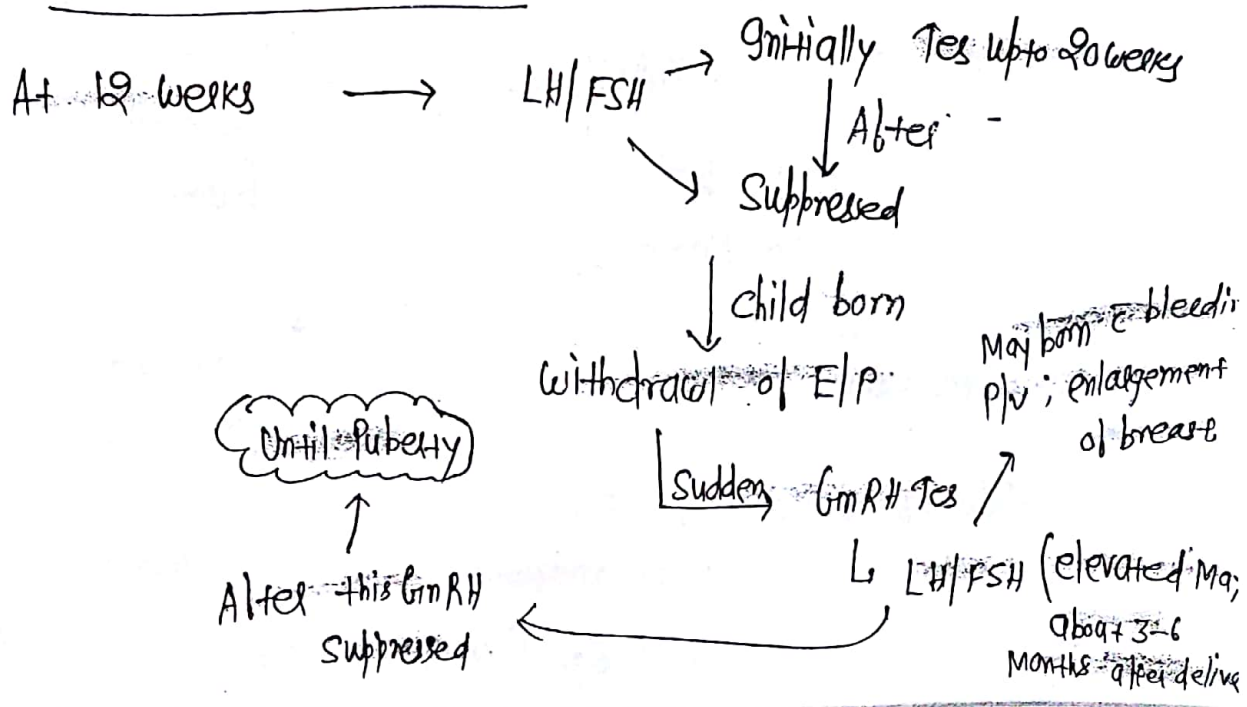 At 12 weeks → LH/FSH → Initially ↑es upto 20 weeks
↓ After -
Suppressed
↓ child born
Withdrawl of E/P
May born c̄ bleedin
P/v ; enlargement
of breast
Sudden → GnRH ↑es
↳ LH/FSH (elevated Ma;
about 3-6
Months after delive
After this GnRH
suppressed.
Until Puberty